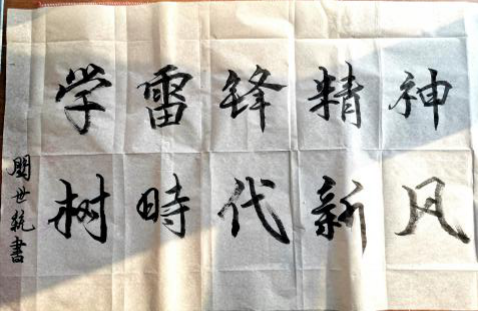 学雷锋精神
树時代新风
閔世統書